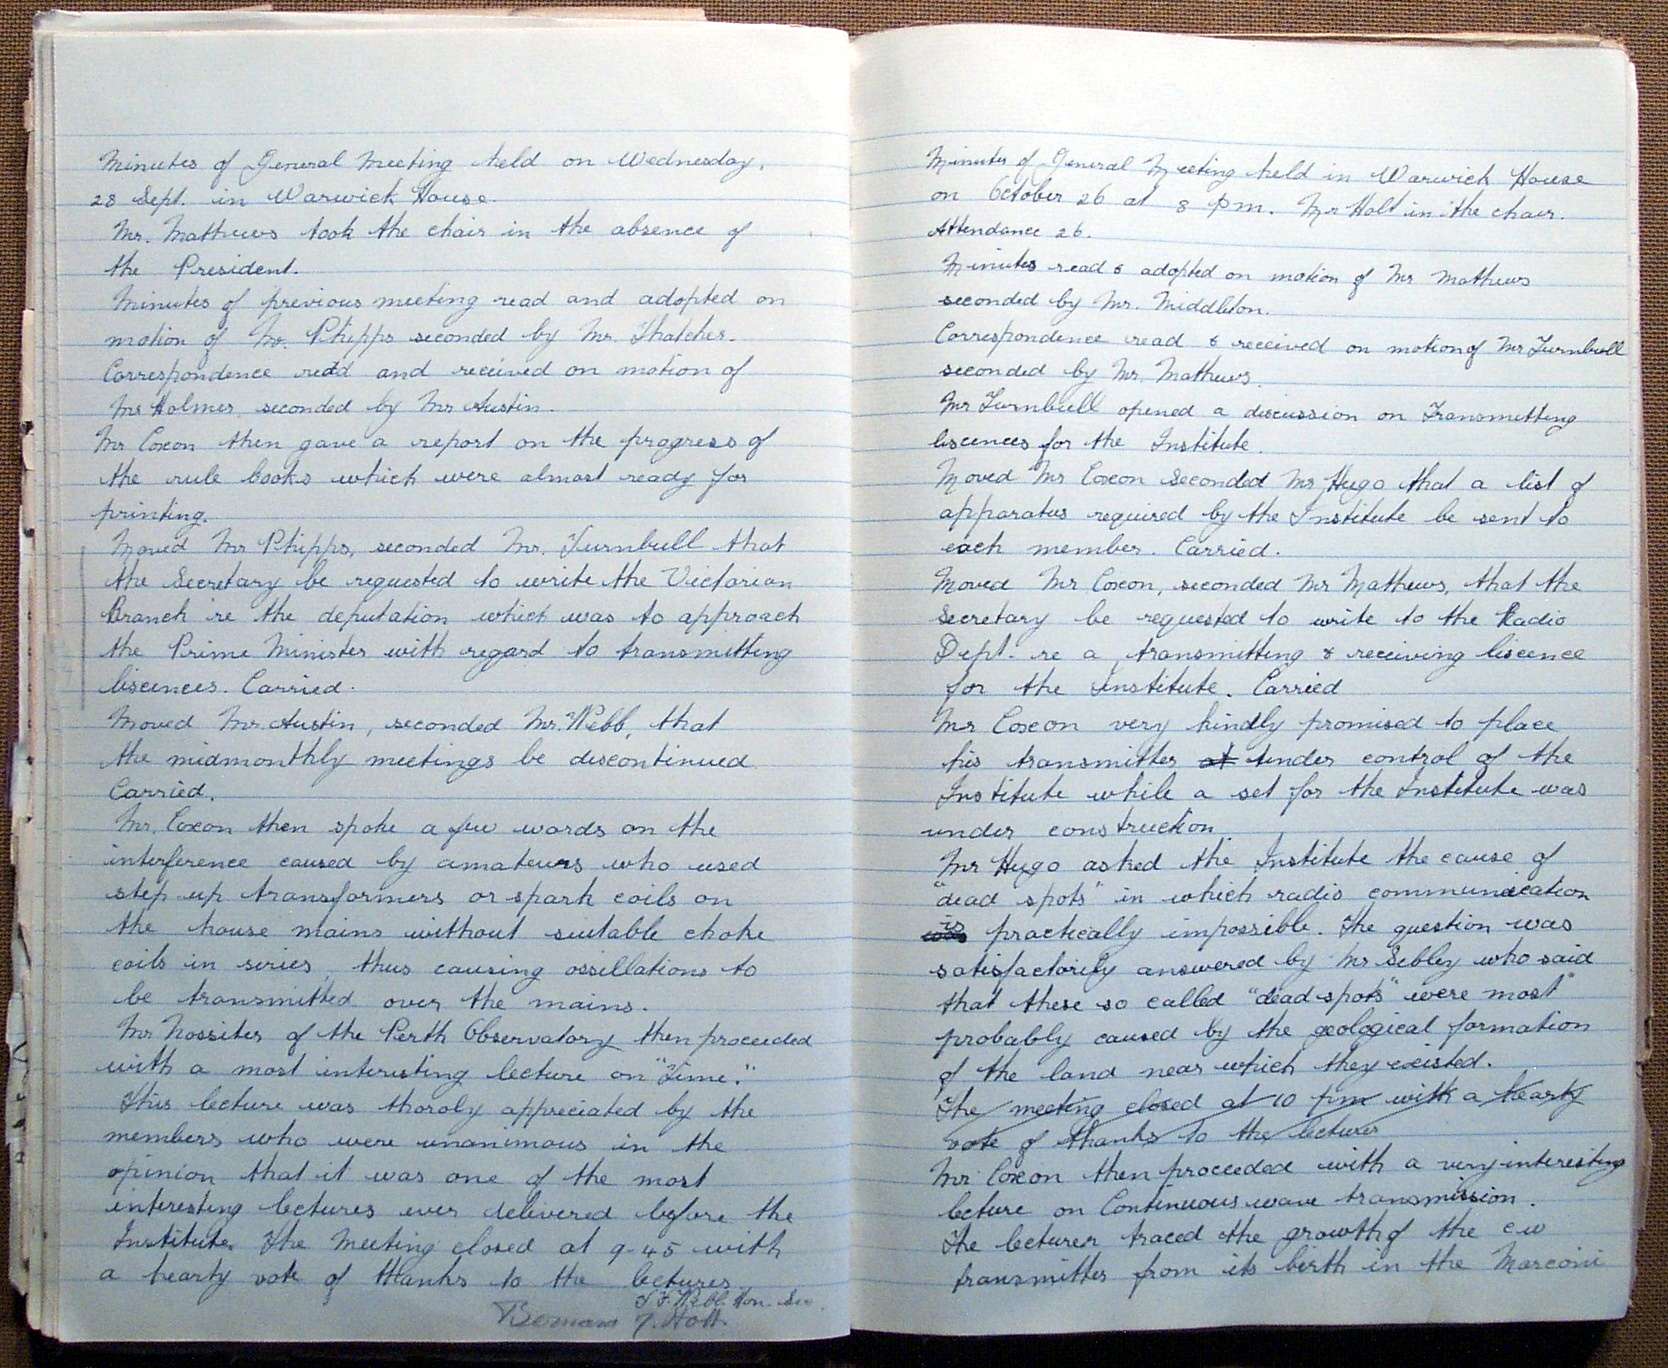 Minutes of General Meeting held on Wednesday,
28 Sept. in Warwick House.
Mr. Mathews took the chair in the absence of
the President.
Minutes of previous meeting read and adopted on
motion of Mr. Phipps seconded by Mr. Thatcher.
Correspondence read and received on motion of
Mr Holmes, seconded by Mr Austin.
Mr Coxon then gave a report on the progress of
the rule books which were almost ready for
printing.
Moved Mr Phipps, seconded Mr. Turnbull that
the Secretary be requested to write the Victorian
Branch re the deputation which was to approach
the Prime Minister with regard to transmitting
liscences. Carried.
Moved Mr. Austin, seconded Mr. Webb, that
the midmonthly meetings be discontinued
Carried.
Mr. Coxon then spoke a few words on the
interference caused by amateurs who used
step up transformers or spark coils on
the house mains without suitable choke
coils in series, thus causing ossillations to
be transmitted over the mains.
Mr Nossiter of the Perth Observatory then proceeded
with a most interesting lecture on "Time."
This lecture was thoroly appreciated by the
members who were unanimous in the
opinion that it was one of the most
interesting lectures ever delivered before the
Institute. The Meeting closed at 9-45 with
a hearty vote of thanks to the lecturer.
Webb. Hon. Sec.
Holt.
Minutes of General Meeting held in Warwick House
on October 26 at 8 pm. Mr Holt in the chair.
Attendance 26.
Minutes read & adopted on motion of Mr Mathews
seconded by Mr. Middleton.
Correspondence read & received on motion of Mr Turnbull
seconded by Mr. Mathews.
Mr Turnbull opened a discussion on Transmitting
liscences for the Institute.
Moved Mr Coxon Seconded Mr Hugo that a list of
apparatus required by the Institute be sent to
each member. Carried.
Moved Mr Coxon, seconded Mr Mathews, that the
Secretary be requested to write to the Radio
Dept. re a transmitting & receiving liscence
for the institute. Carried
Mr Coxon very kindly promised to place
his transmitter at under control of the
Institute while a set for the Institute was
under construction
Mr Hugo asked the Institute the cause of
"dead spots" in which radio communication
is practically impossible. The question was
satisfactorily answered by Mr Sibley who said
that these so called "dead spots" were most
probably caused by the geological formation
of the land near which they existed.
The meeting closed at 10 pm with a hearty
vote of thanks to the lecturer
Mr Coxon then proceeded with a very interesting
lecture on Continuous wave transmission.
The lecturer traced the growth of the cw
transmitter from its birth in the Marconi